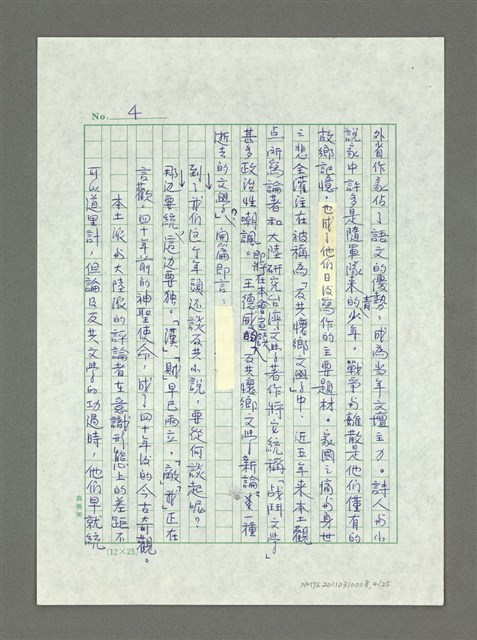 No. 4
外省作家佔了語文的優勢,成為當年文壇主力。詩人與小
說家中許多是隨軍隊來的青少年,戰爭與離散是他們僅有的
故鄉記憶,也成了他們日後寫作的主要題材。家國之痛與身世
之悲全灌注在被稱為「反共懷鄉文學」中,近五年來本土觀
點所寫論著和大陸研究台灣文學著作特定統稱「战鬥文学」
甚多政治性嘲諷。王德威即將在本會宣讀「反共懷鄉文學新論」:一種
逝去的文學?」開篇即言:
到了我們這個年頭還談反共小說,要從何談起呢?
那边要統,這边要獨。「漢」「賊」早已兩立,「敵」「我」正在
言歡。四十年前的神聖使命,成了四十年後的今古奇觀。
本土派與大陸派的評論者在意識形態上的差距不
可以道里計,但論及反共文學的功過時,他們早就統
(12×25)
NMTL20110310008, 4/25